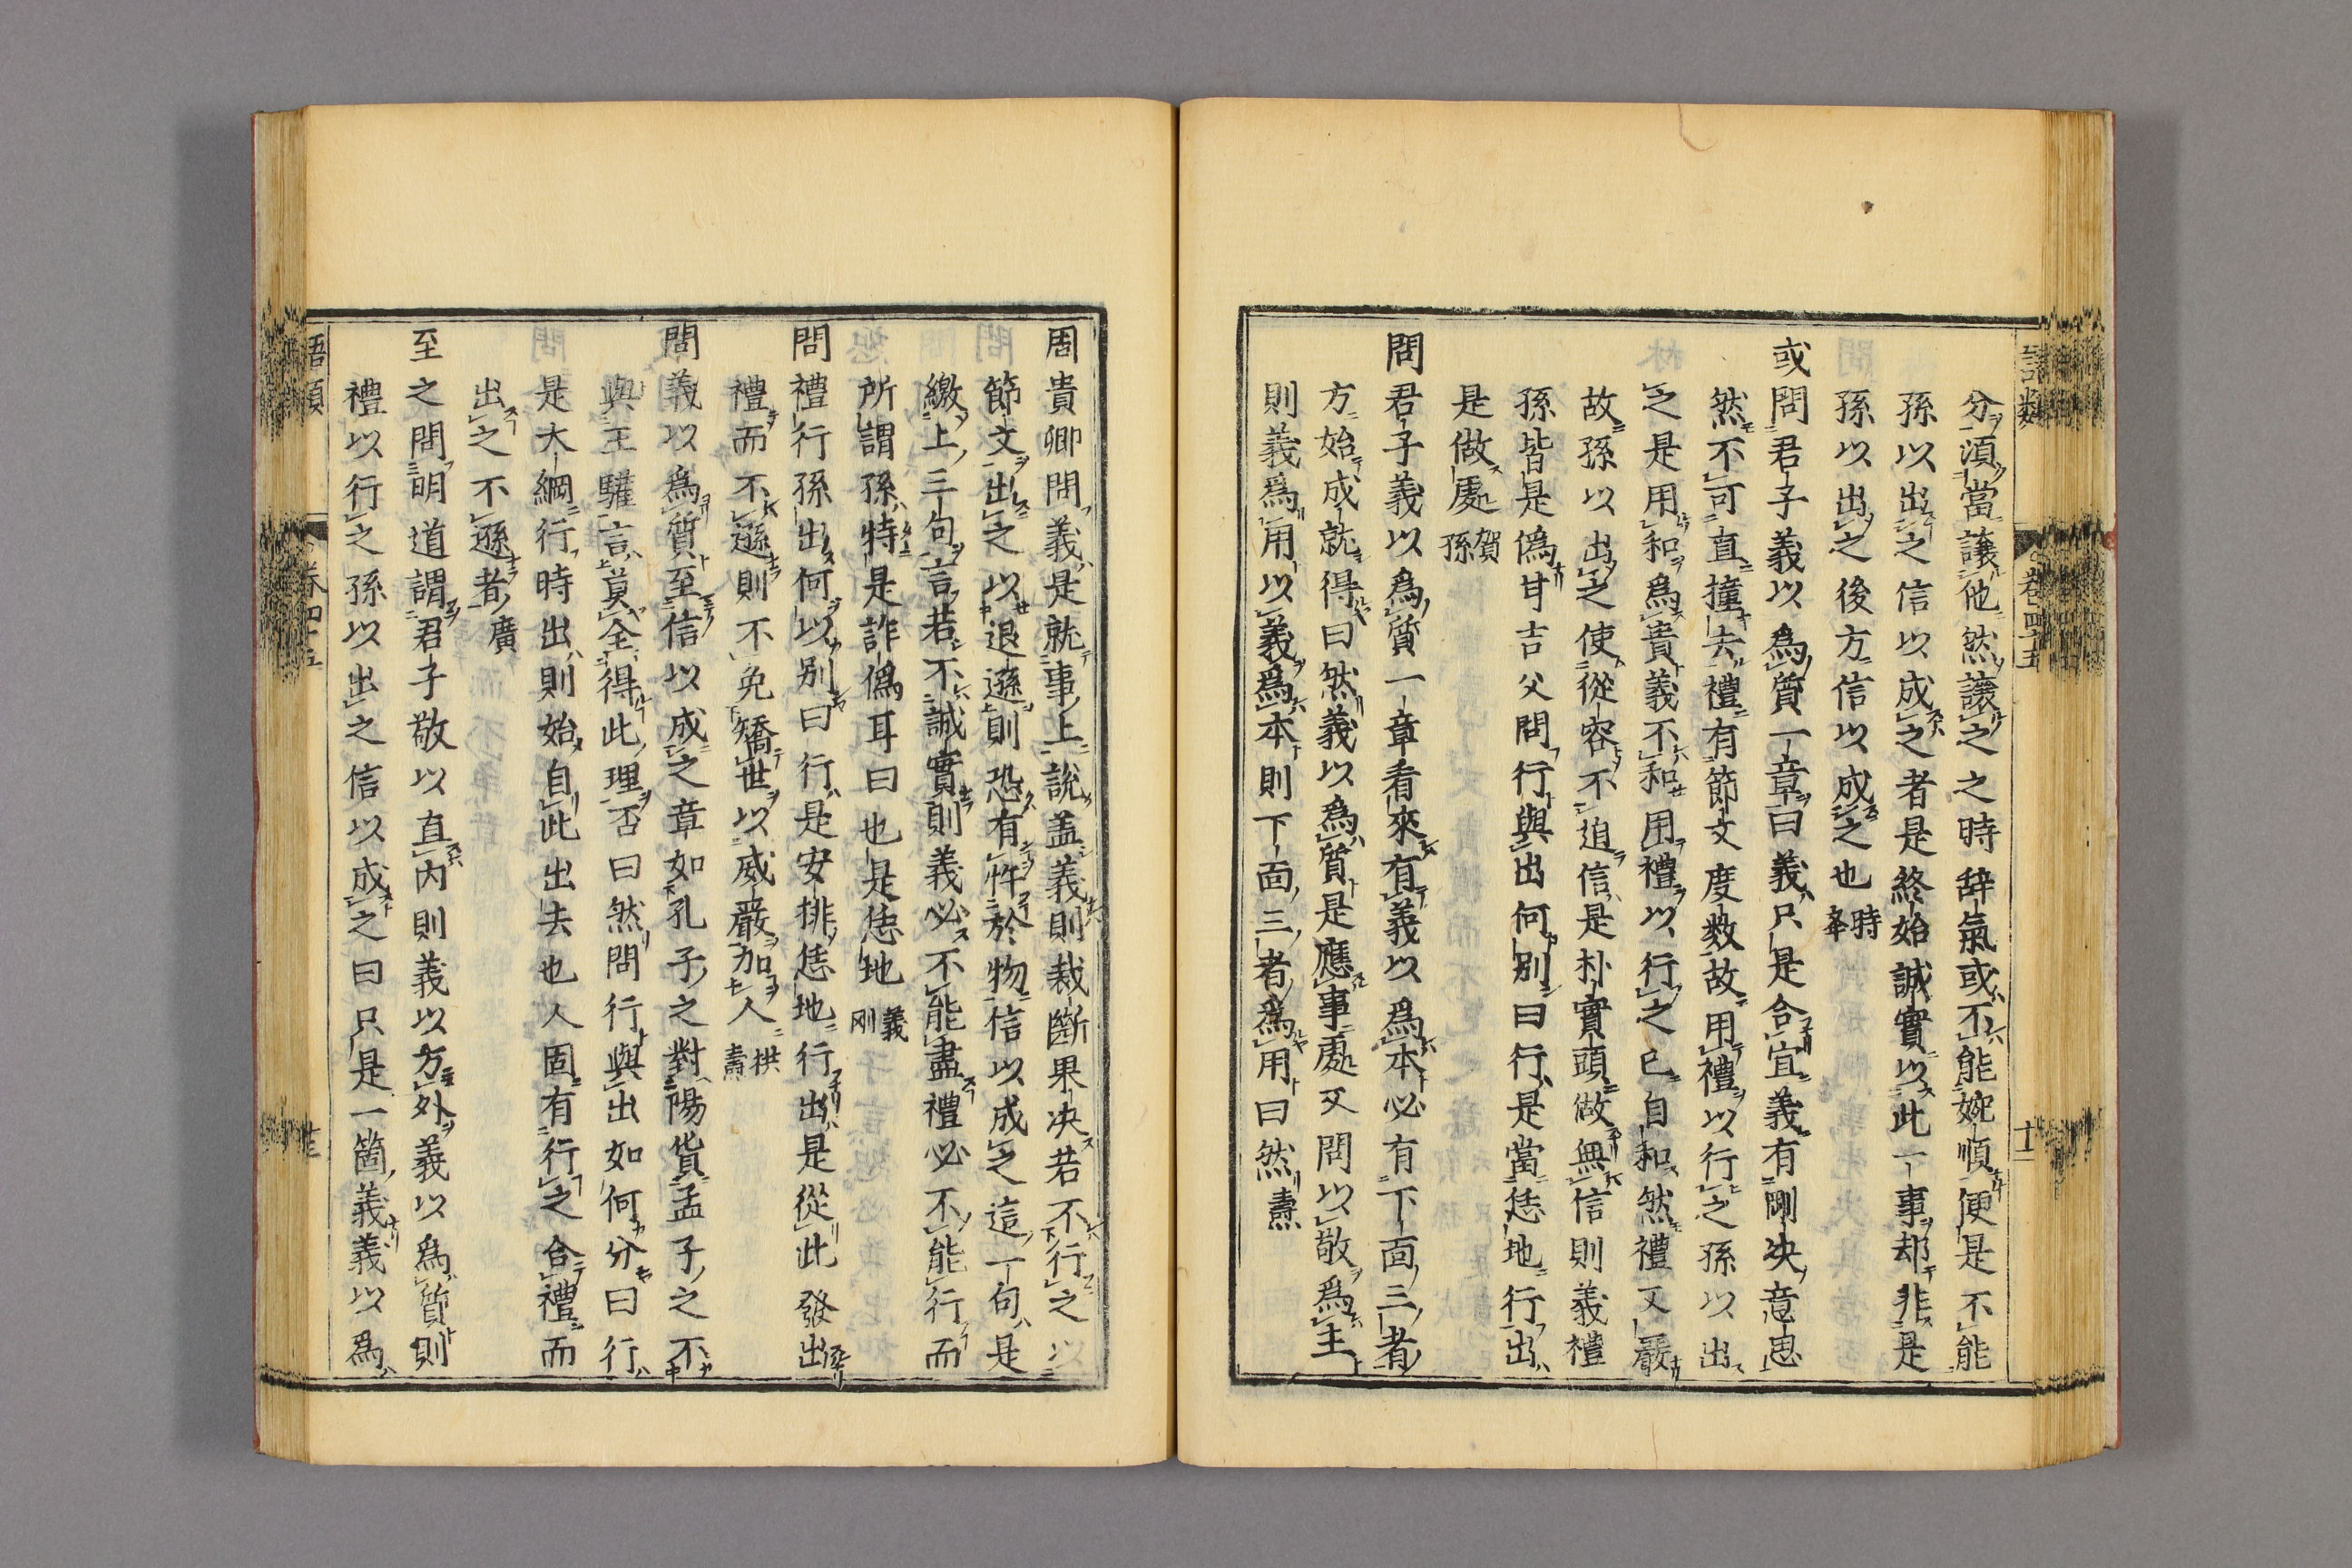 語類 卷四十五 十二
分須當讓他然讓之之時辭氣或不能婉順便是不能
孫以出之信以成之者是終始誠實以此一事却非是
孫以出之後方信以成之也時舉
或問君子義以爲質一章曰義只是合宜義有剛決意思
然不可直撞去禮有節文度數故用禮以行之孫以出
之是用和爲貴義不和用禮以行之已自和然禮又嚴
故孫以出之使從容不迫信是朴實頭做無信則義禮
孫皆是僞甘吉父問行與出何別曰行是當恁地行出
是做處賀孫
問君子義以爲質一章看來有義以爲本必有下面三者
方始成就得曰然義以爲質是應事處又問以敬爲主
則義爲用以義爲本則下面三者爲用曰然燾
周貴卿問義是就事上說蓋義則裁斷果決若不行之以
節文出之以退遜則恐有忤於物信以成之這一句是
繳上三句言若不誠實則義必不能盡禮必不能行而
所謂孫特是詐僞耳曰也是恁地義剛
問禮行孫出何以別曰行是安排恁地行出是從此發出
禮而不遜則不免矯世以威嚴加人拱燾
問義以爲質至信以成之章如孔子之對陽貨孟子之不
與王驩言莫全得此理否曰然問行與出如何分曰行
是大綱行時出則始自此出去也人固有行之合禮而
出之不遜者廣
至之問明道謂君子敬以直內則義以方外義以爲質則
禮以行之孫以出之信以成之曰只是一箇義義以爲
語類 卷四十五